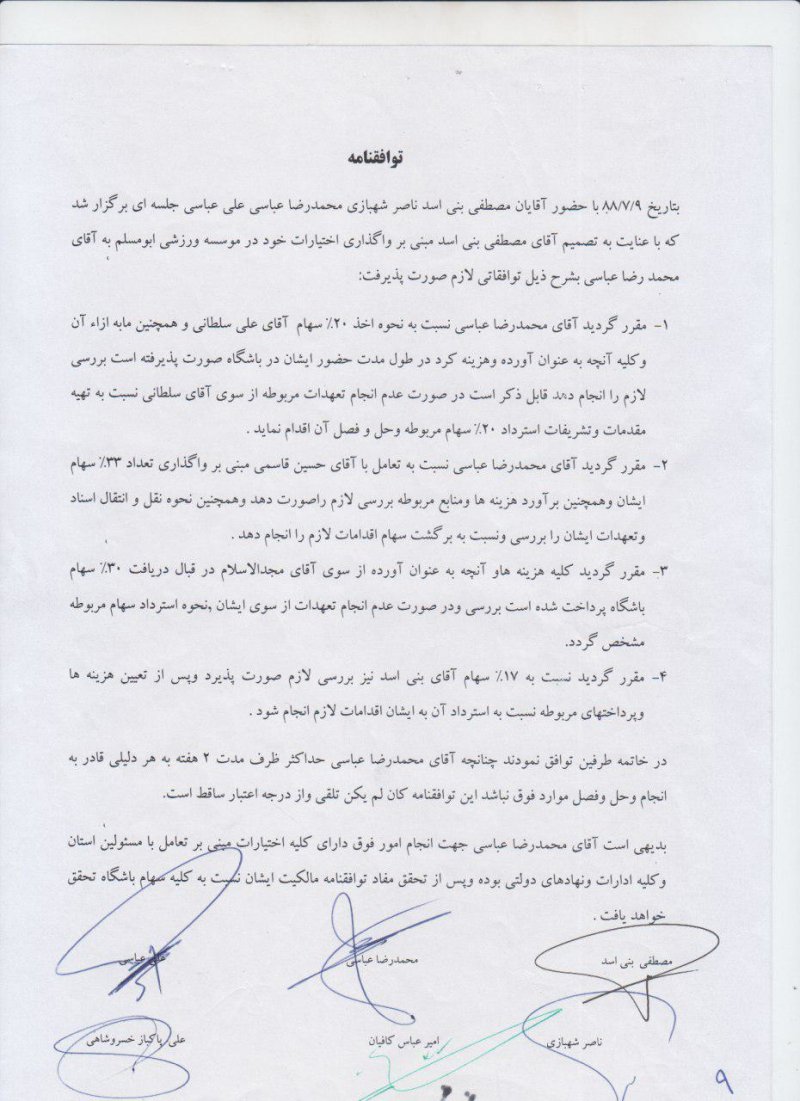 توافقنامه
بتاریخ ۸۸/۷/۹ با حضور آقایان مصطفی بنی اسد ناصر شهبازی محمدرضا عباسی علی عباسی جلسه ای برگزار شد
که با عنایت به تصمیم آقای مصطفی بنی اسد مبنی بر واگذاری اختیارات خود در موسسه ورزشی ابومسلم به آقای
محمد رضا عباسی بشرح ذیل توافقاتی لازم صورت پذیرفت:
۱- مقرر گردید آقای محمدرضا عباسی نسبت به نحوه اخذ ۲۰٪ سهام آقای علی سلطانی و همچنین مابه ازاء آن
وکلیه آنچه به عنوان آورده وهزینه کرد در طول مدت حضور ایشان در باشگاه صورت پذیرفته است بررسی
لازم را انجام دهد قابل ذکر است در صورت عدم انجام تعهدات مربوطه از سوی آقای سلطانی نسبت به تهیه
مقدمات وتشریفات استرداد ۲۰٪ سهام مربوطه وحل و فصل آن اقدام نماید .
۲- مقرر گردید آقای محمدرضا عباسی نسبت به تعامل با آقای حسین قاسمی مبنی بر واگذاری تعداد ۳۳٪ سهام
ایشان وهمچنین برآورد هزینه ها ومنابع مربوطه بررسی لازم راصورت دهد وهمچنین نحوه نقل و انتقال اسناد
وتعهدات ایشان را بررسی ونسبت به برگشت سهام اقدامات لازم را انجام دهد .
۳- مقرر گردید کلیه هزینه هاو آنچه به عنوان آورده از سوی آقای مجدالاسلام در قبال دریافت ۳۰٪ سهام
باشگاه پرداخت شده است بررسی ودر صورت عدم انجام تعهدات از سوی ایشان ,نحوه استرداد سهام مربوطه
مشخص گردد.
۴- مقرر گردید نسبت به ۱۷٪ سهام آقای بنی اسد نیز بررسی لازم صورت پذیرد وپس از تعیین هزینه ها
وپرداختهای مربوطه نسبت به استرداد آن به ایشان اقدامات لازم انجام شود .
در خاتمه طرفین توافق نمودند چنانچه آقای محمدرضا عباسی حداکثر ظرف مدت ۲ هفته به هر دلیلی قادر به
انجام وحل وفصل موارد فوق نباشد این توافقنامه کان لم یکن تلقی واز درجه اعتبار ساقط است.
بدیهی است آقای محمدرضا عباسی جهت انجام امور فوق دارای کلیه اختیارات مبنی بر تعامل با مسئولین استان
وکلیه ادارات ونهادهای دولتی بوده وپس از تحقق مفاد توافقنامه مالکیت ایشان نسبت به کلیه سهام باشگاه تحقق
خواهد یافت .
مصطفی بنی اسد محمدرضا عباسی علی عباسی
ناصر شهبازی امیر عباس کافیان علی پاکباز خسروشاهی
۹